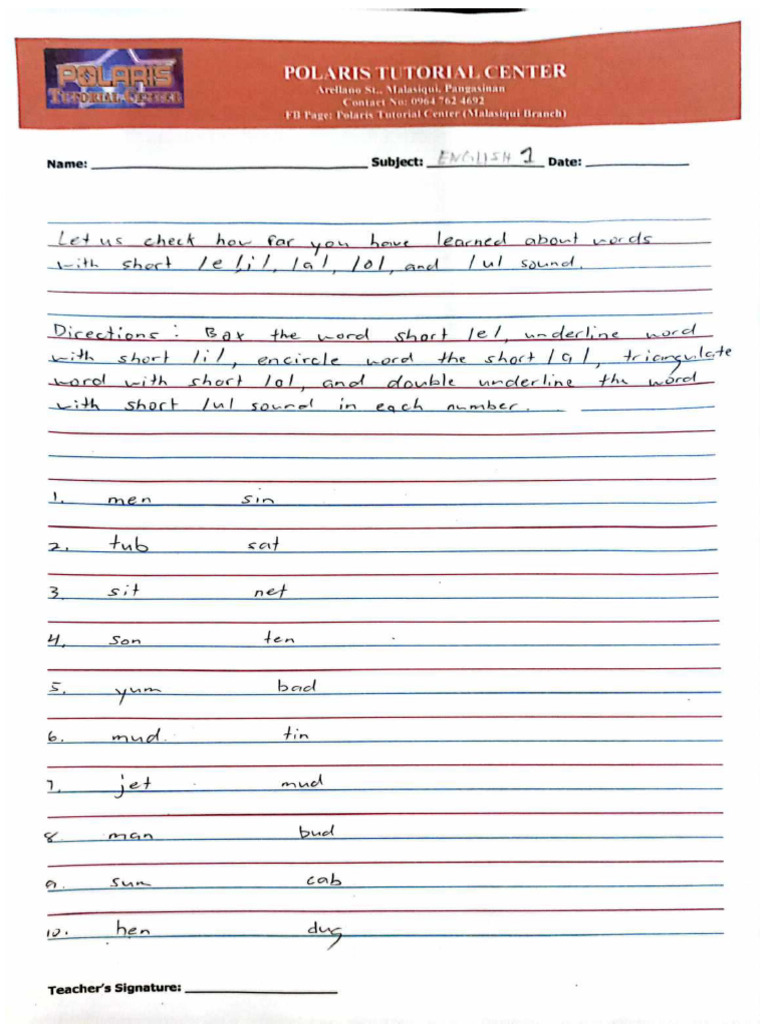 POLARIS
TUTORIAL CENTER
POLARIS TUTORIAL CENTER
Arellano St., Malasiqui, Pangasinan
Contact No: 0964 762 4692
FB Page: Polaris Tutorial Center (Malasiqui Branch)
Name: Subject: ENGLISH 1 Date:
Let us check how far you have learned about words
with short /e/, /i/, /a/, /o/, and /u/ sound.
Directions: Box the word short /e/, underline word
with short /i/, encircle word the short /a/, triangulate
word with short /o/, and double underline the word
with short /u/ sound in each number.
1. men sin
2. tub sat
3. sit net
4. son ten
5. yum bad
6. mud tin
7. jet mud
8. man bud
9. sum cab
10. hen dug
Teacher's Signature: